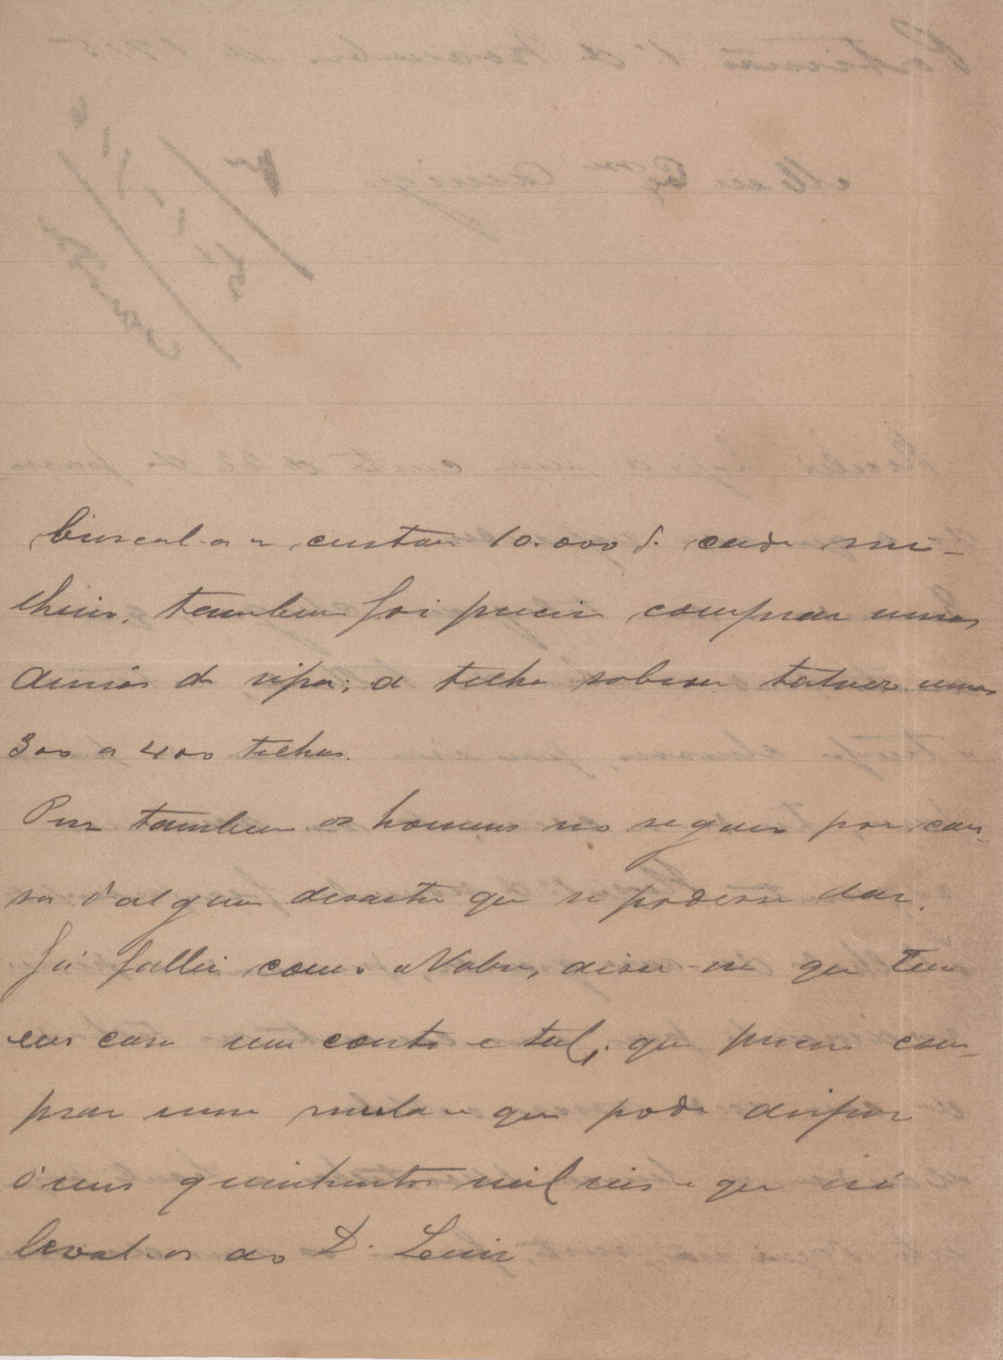 buscal-a e custou 10.000 r. cada mi-
lheiro, tambem foi preciso comprar umas
duzias de ripa; a telha sobrou talvez umas
300 a 400 telhas.
Puz tambem os homens no seguro por cau-
sa d'algum desastre que se podesse dar.
Já fallei com o Nobre, disse-me que tem
em casa um conto e tal, que precisa com-
prar uma mula e que pode dispor
d'uns quinhentos mil reis e que irá
leval-os ao D. Luiz